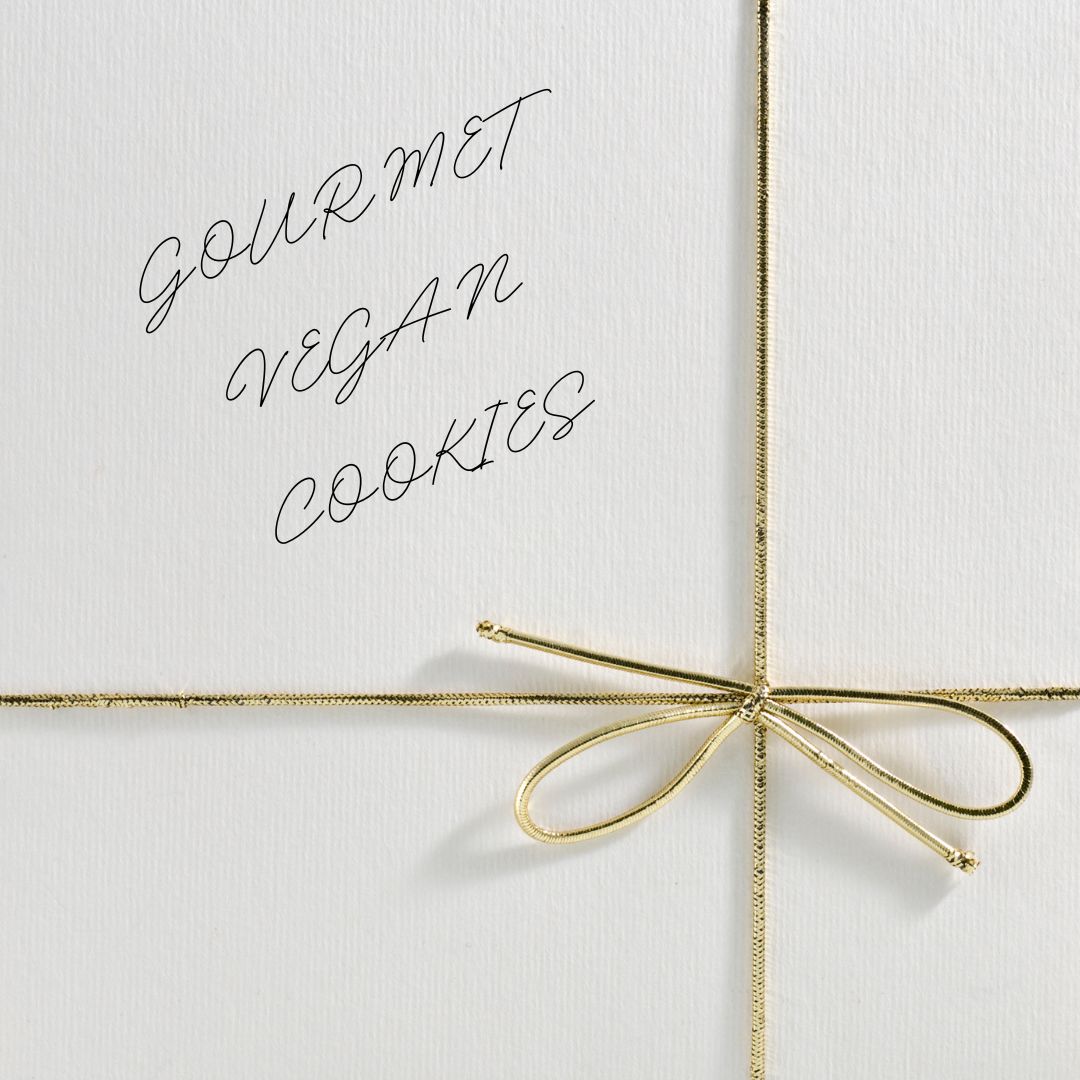 GOURMET
VEGAN
COOKIES